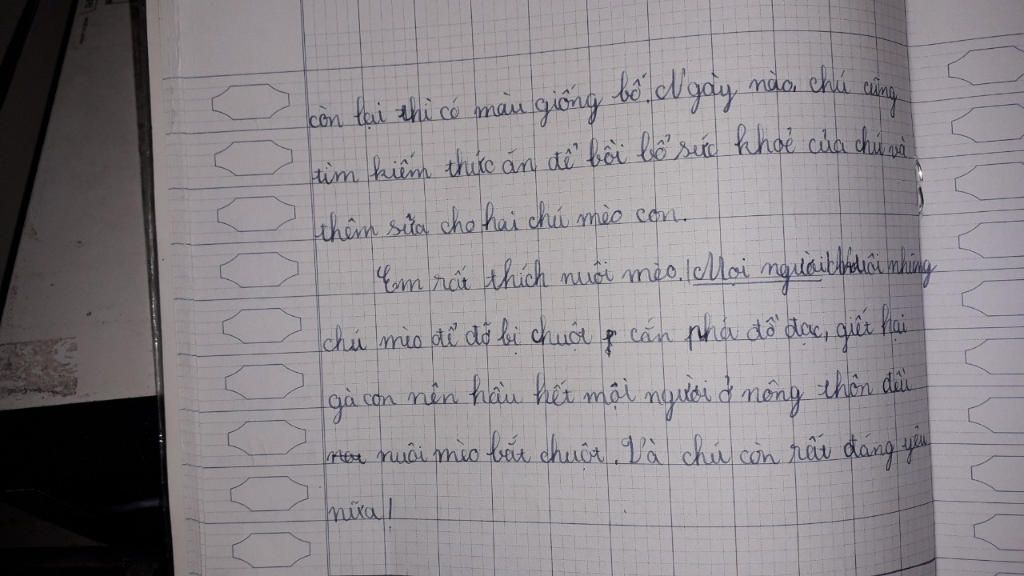 còn lại thì có màu giống bố. Ngày nào, chú cũng
tìm kiếm thức ăn để bồi bổ sức khoẻ của chú và
thêm sữa cho hai chú mèo con.
Em rất thích nuôi mèo. Mọi người nuôi những
chú mèo để đỡ bị chuột cắn phá đồ đạc, giết hại
gà con nên hầu hết mội người ở nông thôn đều
nuôi mèo bắt chuột. Và chú còn rất đáng yêu
nữa!